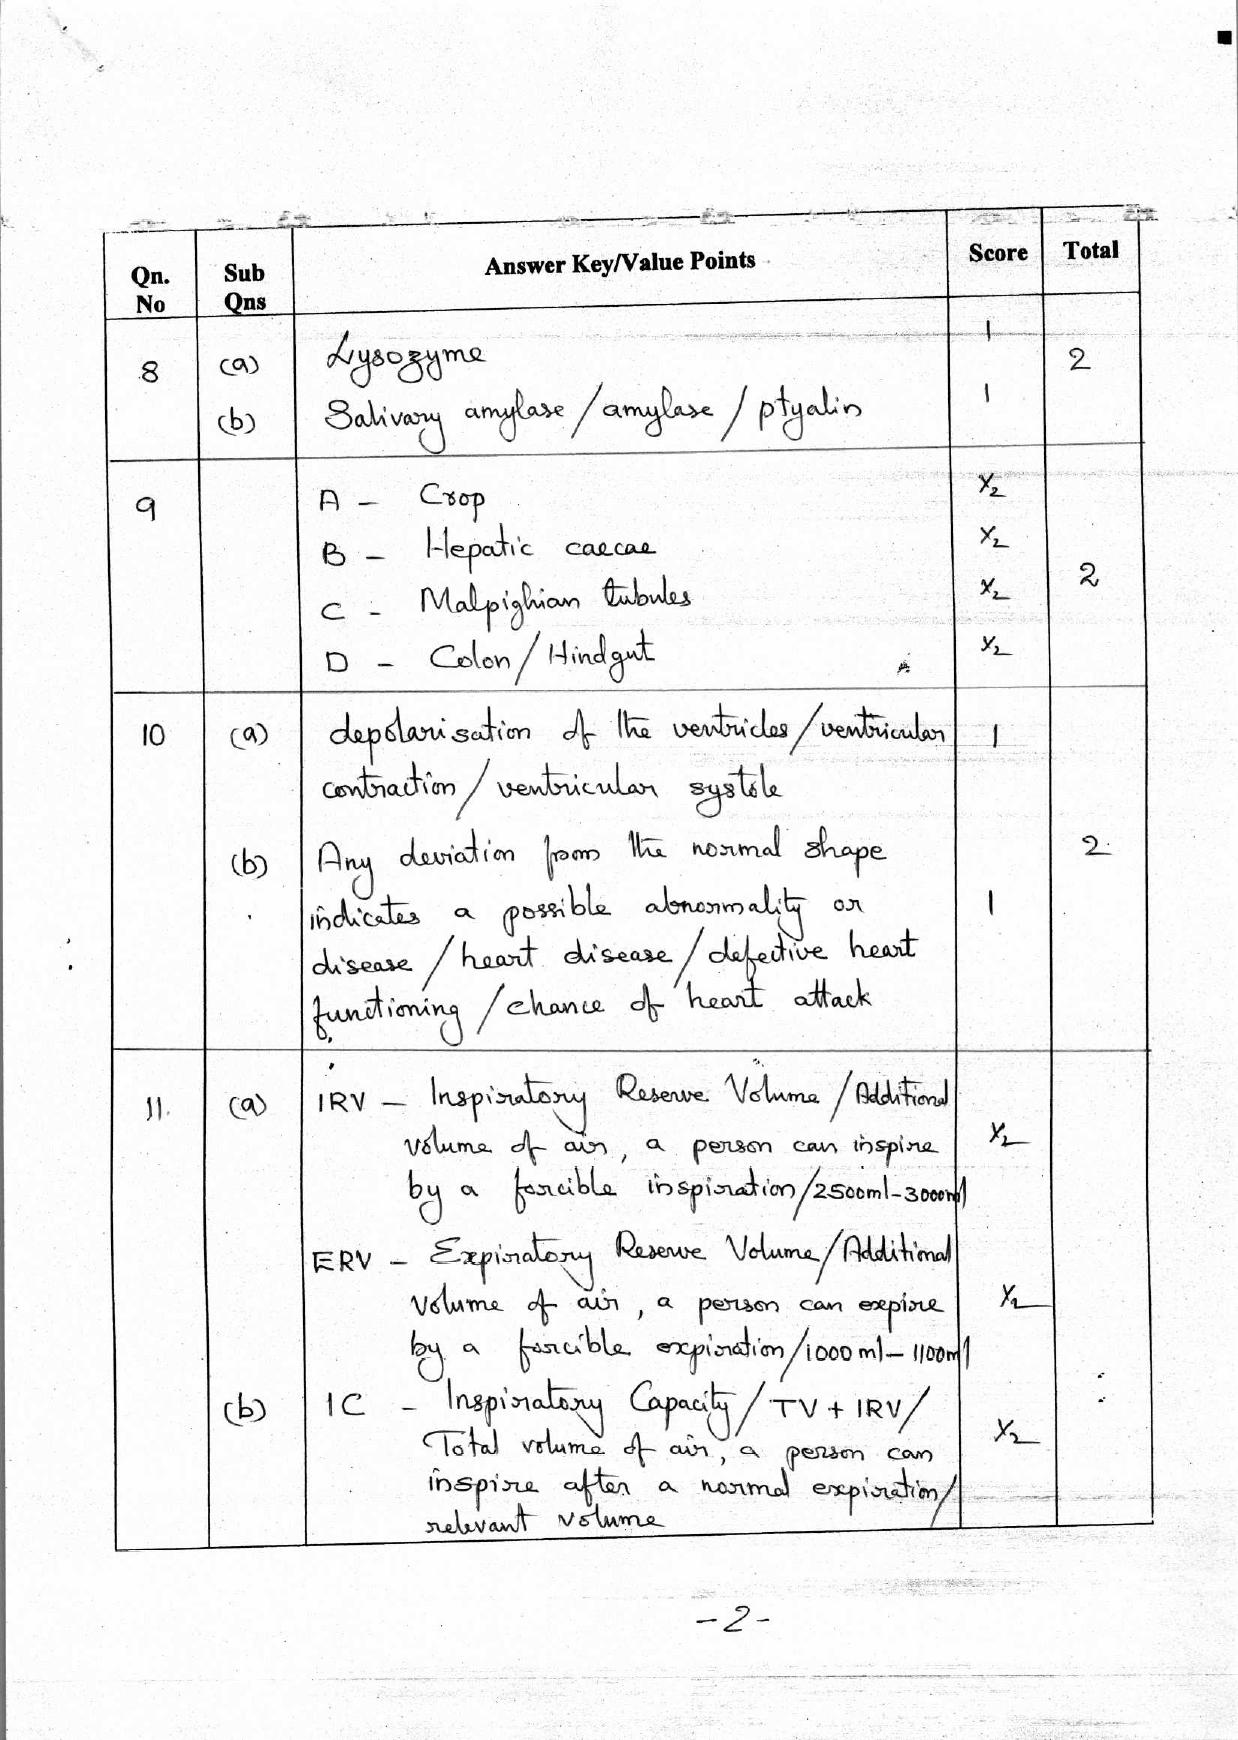 Qn. No Sub Qns Answer Key/Value Points Score Total
8 (a) Lysozyme 1
2
(b) Salivary amylase / amylase / ptyalin 1
9 A - Crop ½
B - Hepatic caecae ½
2
C - Malpighian tubules ½
D - Colon / Hindgut ½
10 (a) depolarisation of the ventricles / ventricular 1
contraction / ventricular systole
(b) Any deviation from the normal shape 2
indicates a possible abnormality or 1
disease / heart disease / defective heart
functioning / chance of heart attack
11. (a) IRV - Inspiratory Reserve Volume / Additional
volume of air, a person can inspire ½
by a forcible inspiration / 2500ml - 3000ml
ERV - Expiratory Reserve Volume / Additional
volume of air, a person can expire ½
by a forcible expiration / 1000 ml - 1100ml
(b) IC - Inspiratory Capacity / TV + IRV /
Total volume of air, a person can ½
inspire after a normal expiration /
relevant volume
-2-